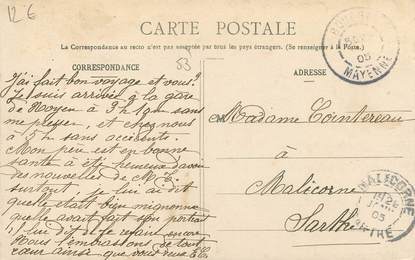 12 €
CARTE POSTALE
La Correspondance au recto n'est pas acceptée par tous les pays étrangers. (Se renseigner à la Poste.)
CORRESPONDANCE
ADRESSE
53
J'ai fait bon voyage et vous?
Je suis arrivée à la gare
de Noyen à 3 h 19m sans
me presser, et chez nous
à 5 h sans accidents.
Mon père est en bonne
santé a été heureux d'avoir
des nouvelles de
surtout, je lui ai dit
quelle était bien mignonne
quelle avait fait son portrait
lui dit de le faire encore.
Nous t'embrassons de tout
cœur ainsi que vous tous
Madame
à
Malicorne
Sarthe
MAYENNE
05
MALICORNE
05
SARTHE